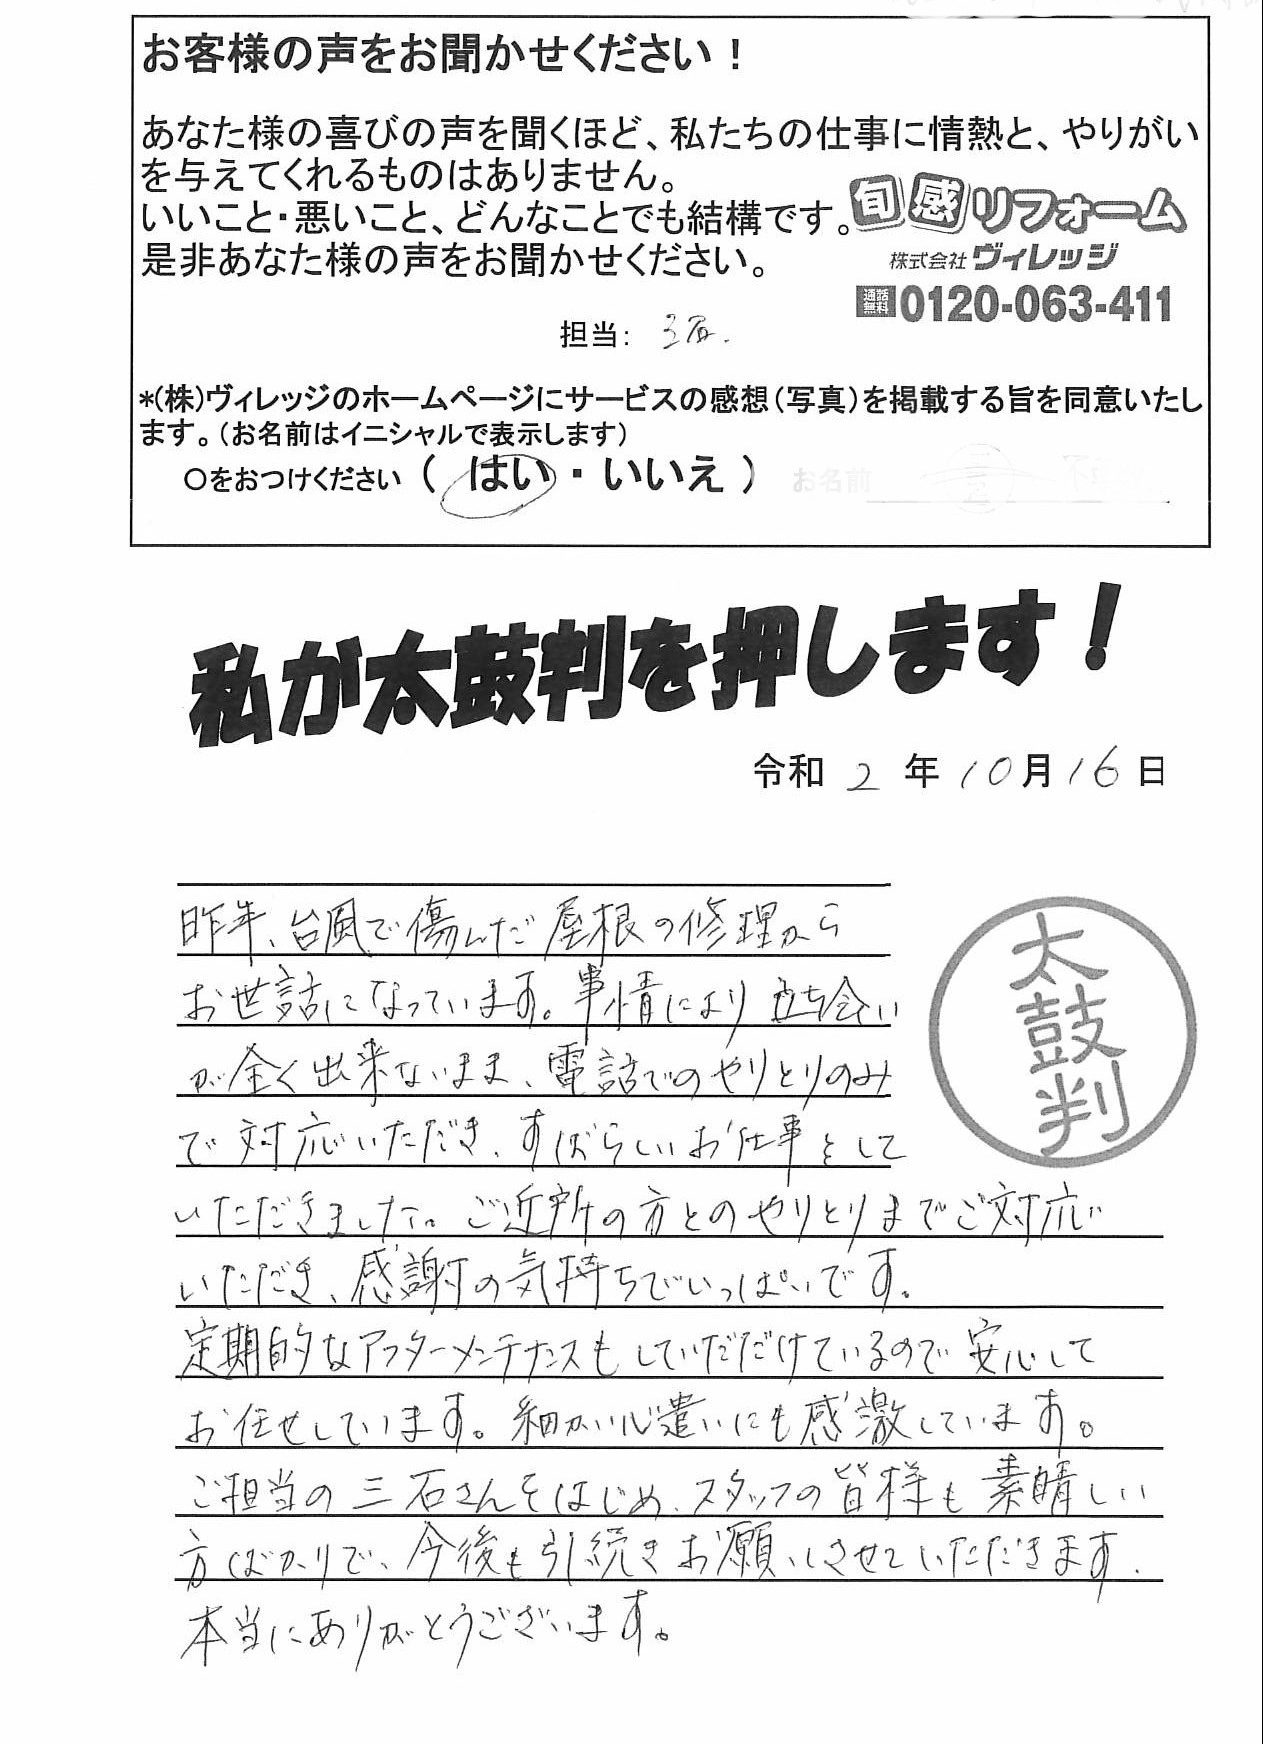 お客様の声をお聞かせください！
あなた様の喜びの声を聞くほど、私たちの仕事に情熱と、やりがい
を与えてくれるものはありません。
いいこと・悪いこと、どんなことでも結構です。
是非あなた様の声をお聞かせください。
旬感リフォーム
株式会社ヴィレッジ
通話無料0120-063-411
担当: 三石.
*(株)ヴィレッジのホームページにサービスの感想（写真）を掲載する旨を同意いたし
ます。（お名前はイニシャルで表示します）
○をおつけください（ はい ・ いいえ ） お名前
私が太鼓判を押します！
令和 2 年 10月 16日
昨年、台風で傷んだ屋根の修理から
お世話になっています。事情により立ち会い
が全く出来ないまま、電話でのやりとりのみ
で対応いただき、すばらしいお仕事をして
いただきました。ご近所の方とのやりとりまでご対応
いただき、感謝の気持ちでいっぱいです。
定期的なアフターメンテナンスもしていだだけているので安心して
お任せしています。細かい心遣いにも感激しています。
ご担当の三石さんをはじめ、スタッフの皆様も素晴しい
方ばかりで、今後も引続きお願いさせていただきます.
本当にありがとうございます。
太鼓判